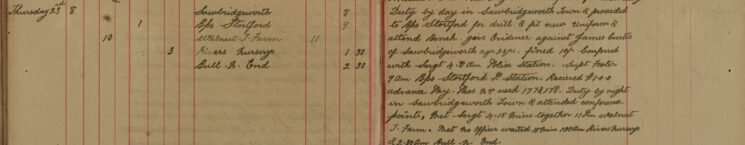 Thursday 23rd 8 Sawbridgeworth 8
1 Bps Stortford 9
10 Walnut T. Farm 11
3 Rivers Nurserys 1 30
Bull R. End 2 30
Duty by day in Sawbridgeworth Town & proceeded
to Bps Stortford for drill & fit new Uniform &
attend Bench gave Evidence against James
of Sawbridgeworth age fined conferred
with Sergt 4. 8am Police Station. Supt Foster
9am Bps Stortford P. Station. Recieved £1-0-0
advance Pay. Pass No used 177 & 178. Duty by night
in Sawbridgeworth Town & attended conference
points, Met Sergt 4. 15 Mins together 11 Pm Walnut
T. Farm. Met no Officer waited 15 Mins 1.30am Rivers Nurserys
& 2.30am Bull R. End.